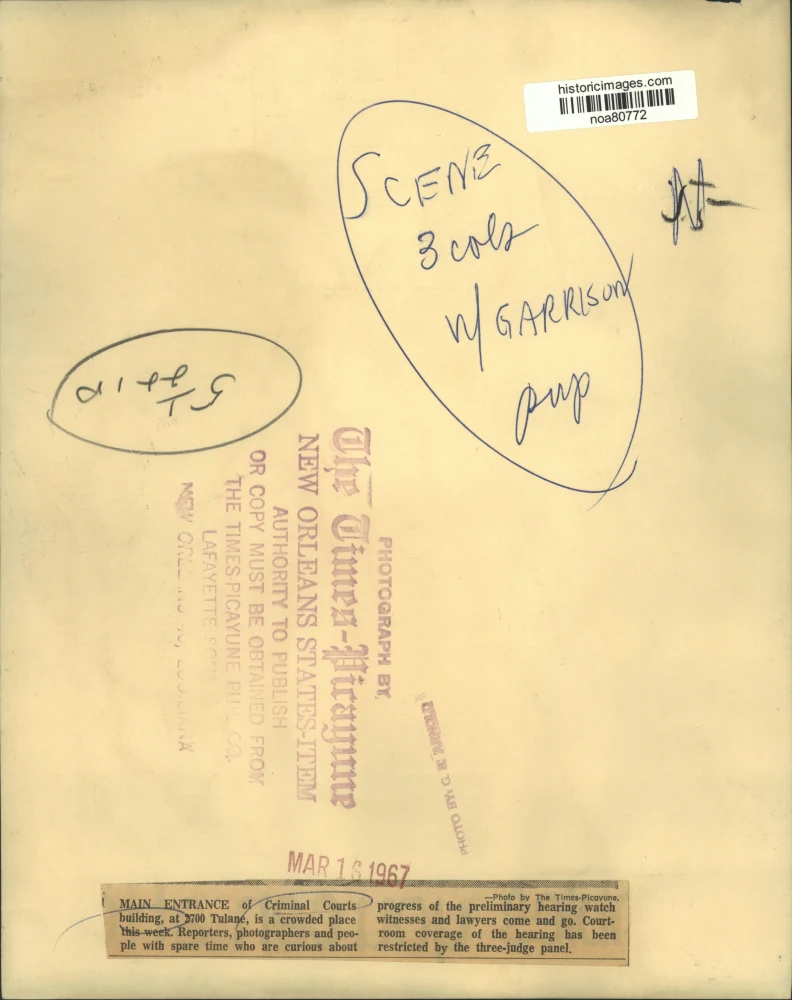 historicimages.com
noa80772
SCENE
3 cols
W/ GARRISON
pup
PHOTOGRAPH BY
The Times-Picayune
NEW ORLEANS STATES-ITEM
AUTHORITY TO PUBLISH
OR COPY MUST BE OBTAINED FROM
THE TIMES-PICAYUNE PUB. CO.
LAFAYETTE
NEW
PHOTO BY: G. E. ARNOLD
MAR 16 1967
MAIN ENTRANCE of Criminal Courts
building, at 2700 Tulane, is a crowded place
this week. Reporters, photographers and peo-
ple with spare time who are curious about
—Photo by The Times-Picayune.
progress of the preliminary hearing watch
witnesses and lawyers come and go. Court-
room coverage of the hearing has been
restricted by the three-judge panel.